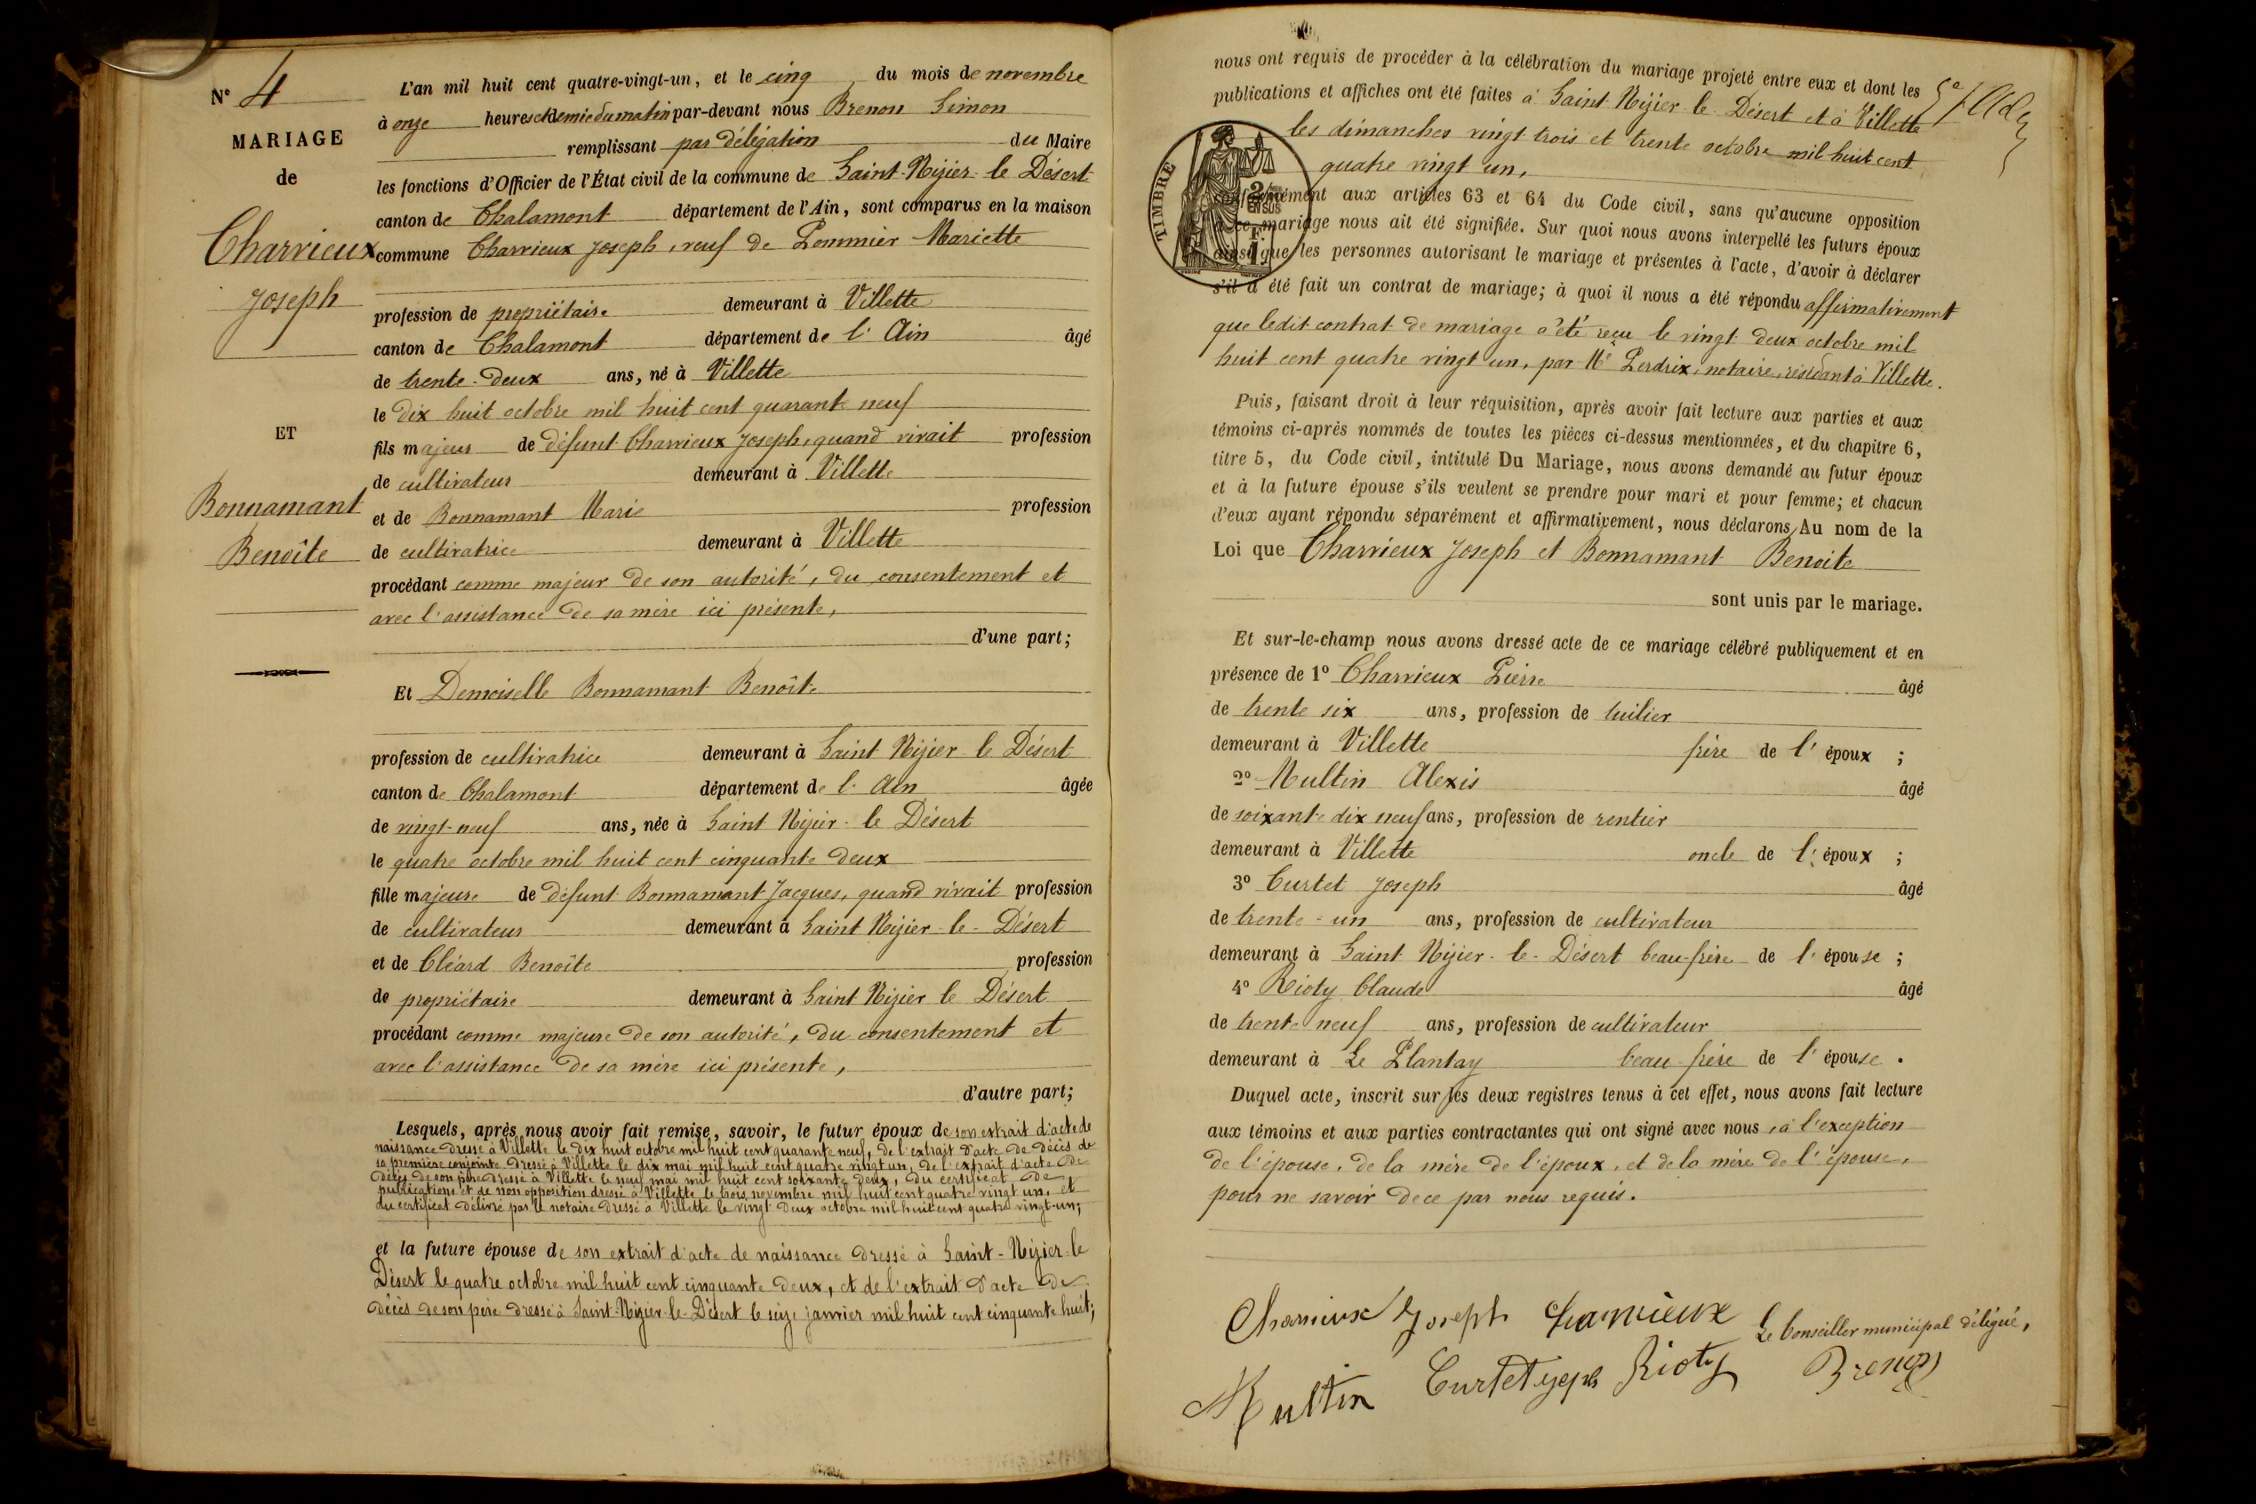 N° 4
MARIAGE
de
Charrieux
Joseph
ET
Bonnamant
Benoîte
L'an mil huit cent quatre-vingt-un, et le cinq du mois de novembre
à onze heures et demie du matin par-devant nous Brenon Simon
remplissant par délégation du Maire
les fonctions d'Officier de l'État civil de la commune de Saint-Nizier-le Désert
canton de Chalamont département de l'Ain, sont comparus en la maison
commune Charrieux Joseph, veuf de Pommier Mariette
profession de propriétaire demeurant à Villette
canton de Chalamont département de l'Ain âgé
de trente-deux ans, né à Villette
le dix huit octobre mil huit cent quarante neuf
fils majeur de défunt Charrieux Joseph, quand vivait profession
de cultivateur demeurant à Villette
et de Bonnamant Marie profession
de cultivatrice demeurant à Villette
procédant comme majeur de son autorité, du consentement et
avec l'assistance de sa mère ici présente,
d'une part;
Et Demoiselle Bonnamant Benoîte
profession de cultivatrice demeurant à Saint Nizier-le Désert
canton de Chalamont département de l'Ain âgée
de vingt-neuf ans, née à Saint Nizier-le Désert
le quatre octobre mil huit cent cinquante deux
fille majeure de défunt Bonnamant Jacques, quand vivait profession
de cultivateur demeurant à Saint Nizier-le-Désert
et de Cléard Benoîte profession
de propriétaire demeurant à Saint Nizier le Désert
procédant comme majeure de son autorité, du consentement et
avec l'assistance de sa mère ici présente,
d'autre part;
Lesquels, après nous avoir fait remise, savoir, le futur époux de son extrait d'acte de
naissance dressé à Villette le dix huit octobre mil huit cent quarante neuf, de l'extrait d'acte de décès de
sa première conjointe dressé à Villette le dix mai mil huit cent quatre vingt un, de l'extrait d'acte de
décès de son père dressé à Villette le neuf mai mil huit cent soixante deux, du certificat de
publications et de non opposition dressé à Villette le trois novembre mil huit cent quatre vingt un, et
du certificat délivré par le notaire dressé à Villette le vingt deux octobre mil huit cent quatre vingt-un;
et la future épouse de son extrait d'acte de naissance dressé à Saint-Nizier-le
Désert le quatre octobre mil huit cent cinquante deux, et de l'extrait d'acte de
décès de son père dressé à Saint-Nizier-le-Désert le seize janvier mil huit cent cinquante huit;
nous ont requis de procéder à la célébration du mariage projeté entre eux et dont les
publications et affiches ont été faites à Saint-Nizier-le Désert et à Villette
les dimanches vingt trois et trente octobre mil huit cent
quatre vingt un,
TIMBRE
conformément aux articles 63 et 64 du Code civil, sans qu'aucune opposition
à ce mariage nous ait été signifiée. Sur quoi nous avons interpellé les futurs époux
ainsi que les personnes autorisant le mariage et présentes à l'acte, d'avoir à déclarer
s'il a été fait un contrat de mariage; à quoi il nous a été répondu affirmativement
que ledit contrat de mariage a été reçu le vingt deux octobre mil
huit cent quatre vingt un, par Me Perdrix, notaire, résidant à Villette.
Puis, faisant droit à leur réquisition, après avoir fait lecture aux parties et aux
témoins ci-après nommés de toutes les pièces ci-dessus mentionnées, et du chapitre 6,
titre 5, du Code civil, intitulé Du Mariage, nous avons demandé au futur époux
et à la future épouse s'ils veulent se prendre pour mari et pour femme; et chacun
d'eux ayant répondu séparément et affirmativement, nous déclarons Au nom de la
Loi que Charrieux Joseph et Bonnamant Benoite
sont unis par le mariage.
Et sur-le-champ nous avons dressé acte de ce mariage célébré publiquement et en
présence de 1° Charrieux Pierre âgé
de trente six ans, profession de tuilier
demeurant à Villette frère de l'époux ;
2° Multin Alexis âgé
de soixante dix neuf ans, profession de rentier
demeurant à Villette oncle de l'époux ;
3° Curtet Joseph âgé
de trente-un ans, profession de cultivateur
demeurant à Saint Nizier-le-Désert beau-frère de l'épouse ;
4° Rioty Claude âgé
de trente neuf ans, profession de cultivateur
demeurant à Le Plantay beau frère de l'épouse.
Duquel acte, inscrit sur les deux registres tenus à cet effet, nous avons fait lecture
aux témoins et aux parties contractantes qui ont signé avec nous, à l'exception
de l'épouse, de la mère de l'époux, et de la mère de l'épouse,
pour ne savoir de ce par nous requis.
Charrieux Joseph Charrieux Le Conseiller municipal délégué,
Multin Curtet Rioty Brenon